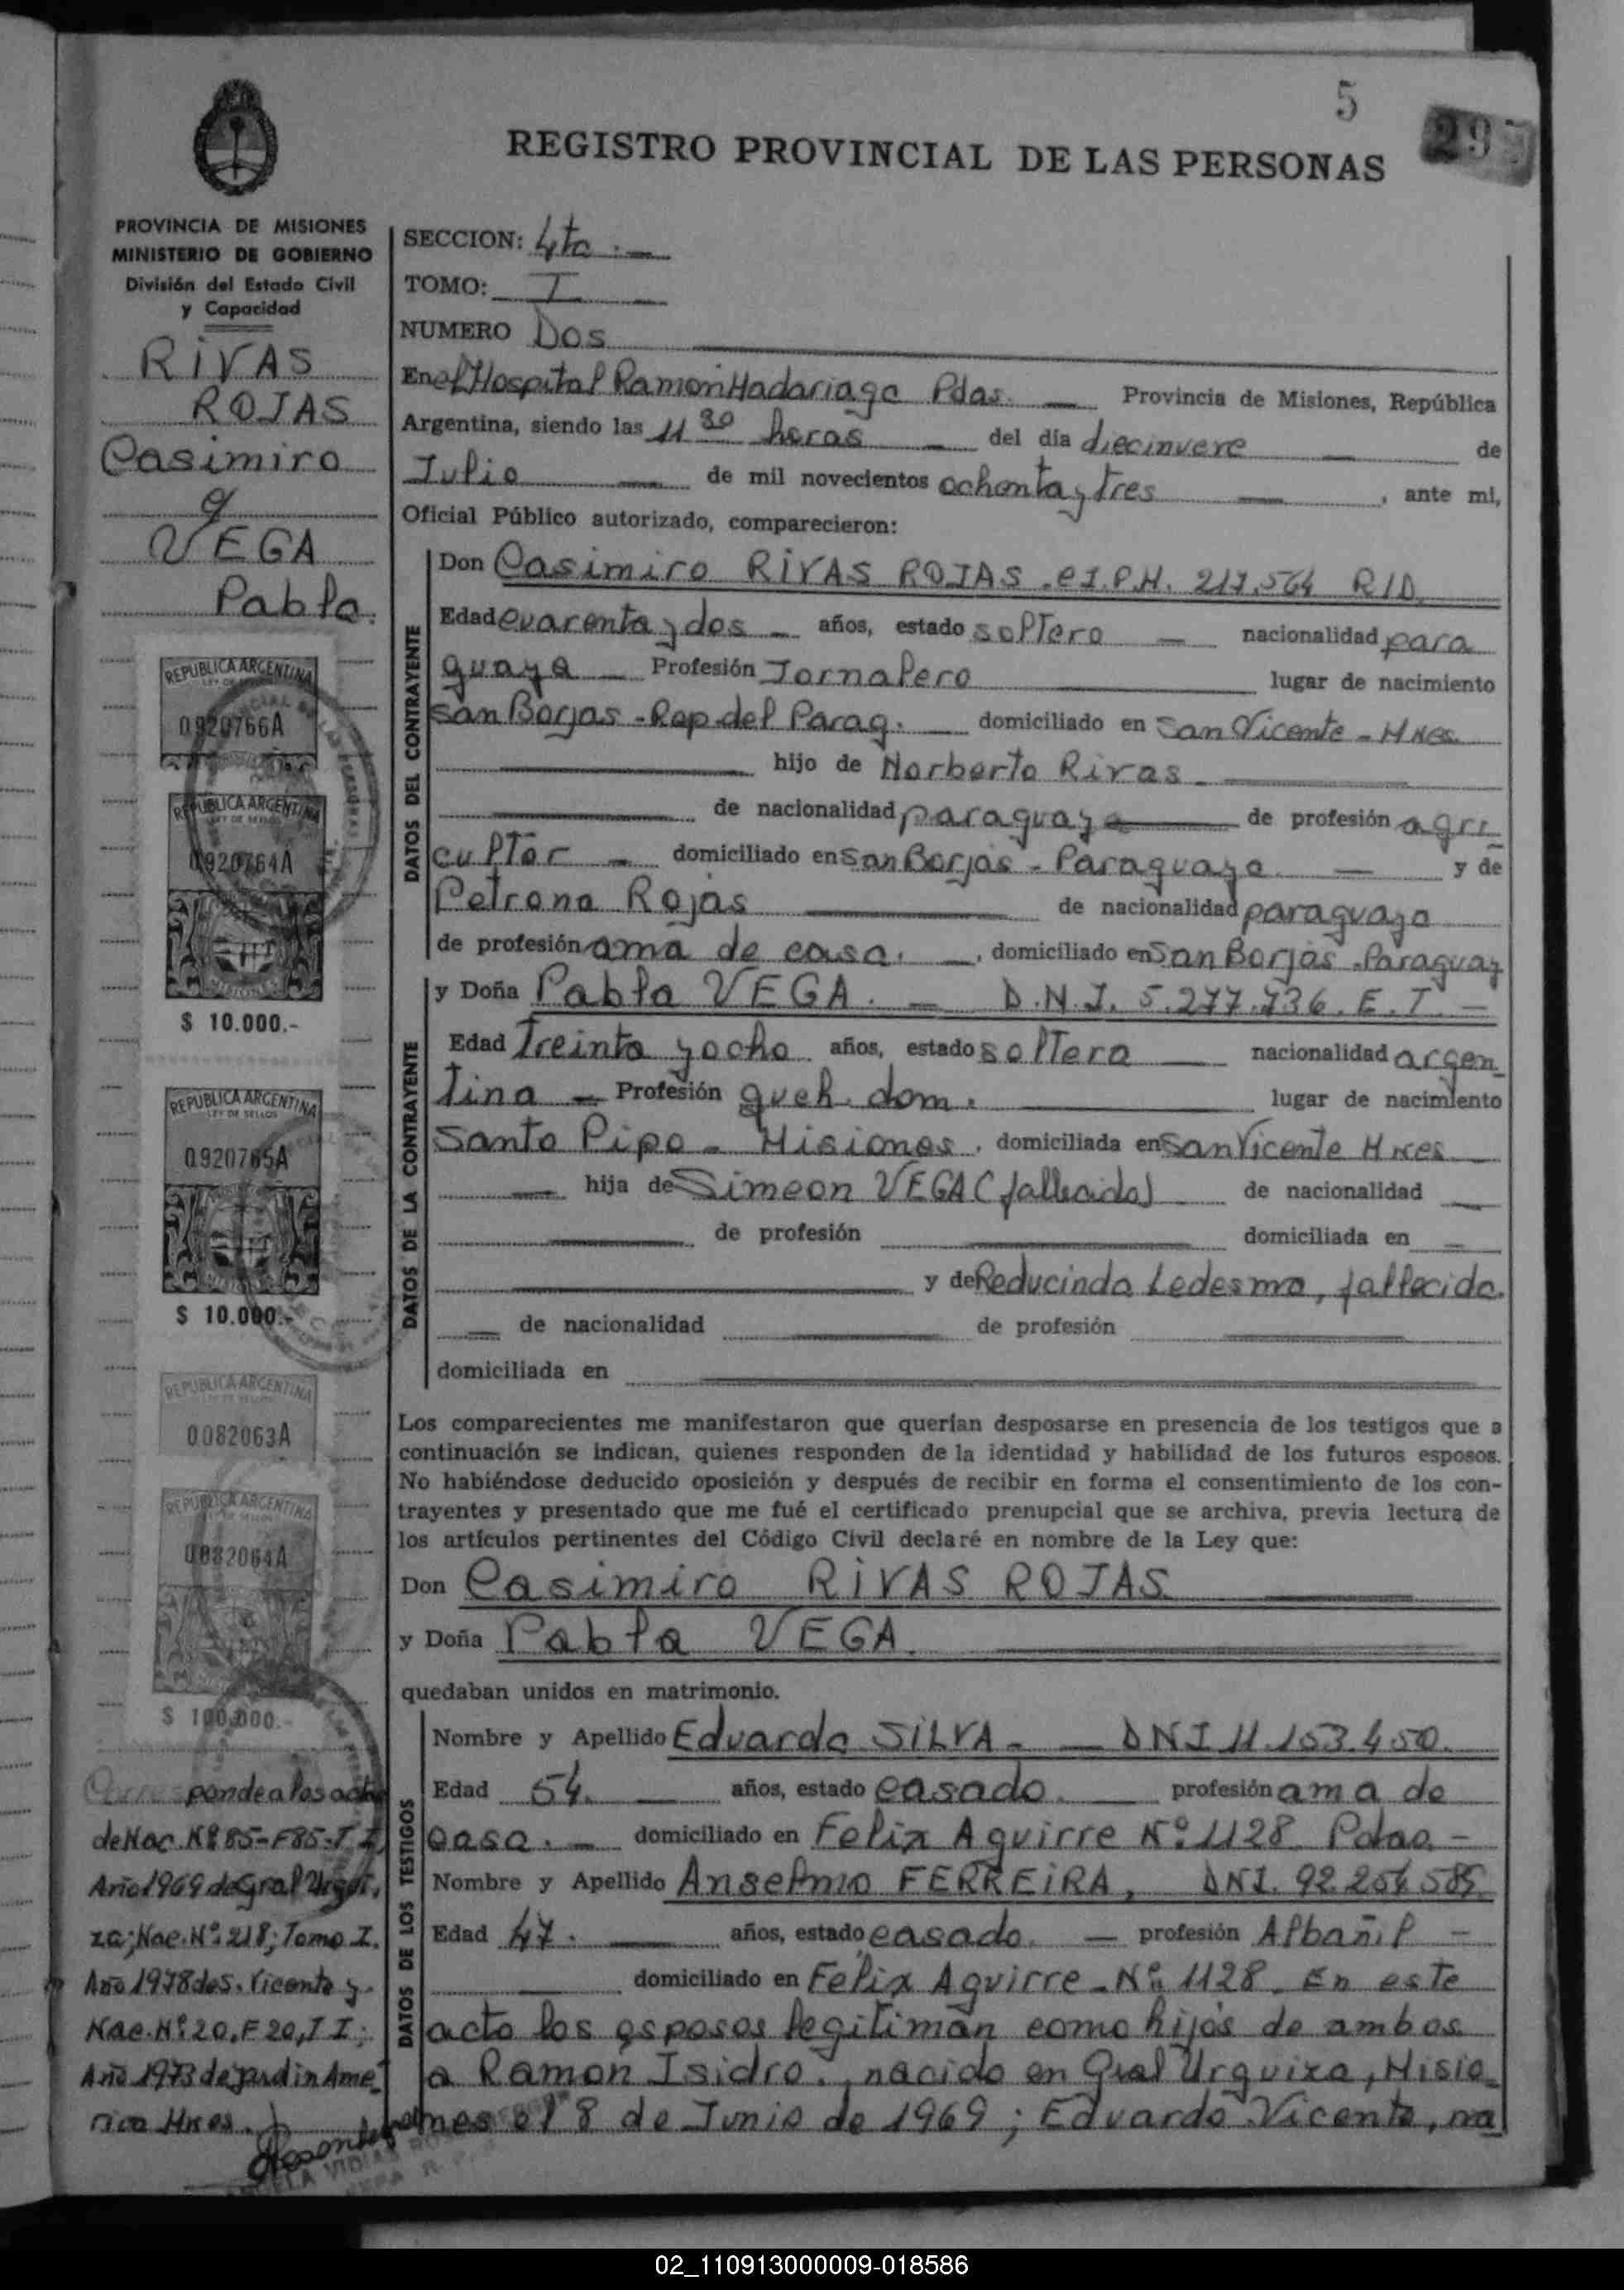 5
297
REGISTRO PROVINCIAL DE LAS PERSONAS
PROVINCIA DE MISIONES
MINISTERIO DE GOBIERNO
División del Estado Civil
y Capacidad
RiVAS
ROJAS
Casimiro
y
VEGA
Pabla.
REPUBLICA ARGENTINA
LEY DE SELLOS
0920766A
REPUBLICA ARGENTINA
LEY DE SELLOS
0920764A
MISIONES
$ 10.000.-
REPUBLICA ARGENTINA
LEY DE SELLOS
0920765A
MISIONES
$ 10.000.-
REPUBLICA ARGENTINA
0082063A
REPUBLICA ARGENTINA
0082064A
$ 100.000.-
Corresponde a los actas
de Nac. Nº 85-F85-T I
Año 1969 de Gral Urqui
za; Nac. Nº 218; Tomo I.
Año 1978 de S. Vicente y
Nac. Nº 20, F 20, T I;
Año 1973 de jardin Ame
rica Mnes.
SECCION: 4ta.-
TOMO: I
NUMERO Dos
En el Hospital Ramon Madariaga Pdas. Provincia de Misiones, República
Argentina, siendo las 11 30 horas del día diecinueve de
Julio de mil novecientos ochenta y tres, ante mi,
Oficial Público autorizado, comparecieron:
DATOS DEL CONTRAYENTE
Don Casimiro RiVAS ROJAS. C.I.P.M. 217.564 R/D.
Edad cuarenta y dos años, estado soltero nacionalidad para
guaya Profesión Jornalero lugar de nacimiento
San Borjas - Rep. del Parag. domiciliado en San Vicente - Mnes.
hijo de Norberto Rivas
de nacionalidad paraguaya de profesión agri
cultor domiciliado en San Borjas - Paraguaya y de
Petrona Rojas de nacionalidad paraguaya
de profesión ama de casa., domiciliado en San Borjas - Paraguay
DATOS DE LA CONTRAYENTE
y Doña Pabla VEGA. D.N.I. 5.277.736. E.T.
Edad Treinta y ocho años, estado soltera nacionalidad argen
tina Profesión queh. dom. lugar de nacimiento
Santo Pipo - Misiones. domiciliada en San Vicente Mnes
hija de Simeon VEGA (fallecido) de nacionalidad
de profesión domiciliada en
y de Reducinda Ledesma, fallecida.
de nacionalidad de profesión
domiciliada en
Los comparecientes me manifestaron que querían desposarse en presencia de los testigos que a
continuación se indican, quienes responden de la identidad y habilidad de los futuros esposos.
No habiéndose deducido oposición y después de recibir en forma el consentimiento de los con-
trayentes y presentado que me fué el certificado prenupcial que se archiva, previa lectura de
los artículos pertinentes del Código Civil declaré en nombre de la Ley que:
Don Casimiro RiVAS ROJAS
y Doña Pabla VEGA.
quedaban unidos en matrimonio.
DATOS DE LOS TESTIGOS
Nombre y Apellido Eduarda SiLVA - DNI 11.153.450.
Edad 54. años, estado casado. profesión ama de
casa. domiciliado en Felix Aguirre Nº 1128 Pdas.-
Nombre y Apellido Anselmo FERREiRA, DNI. 92.254.585.
Edad 47. años, estado casado. profesión Albañil
domiciliado en Felix Aguirre - Nº 1128. En este
acto los esposos legitiman como hijos de ambos
a Ramon Isidro, nacido en Gral Urquiza, Misio
nes el 8 de Junio de 1969; Eduardo Vicente, na
02_110913000009-018586